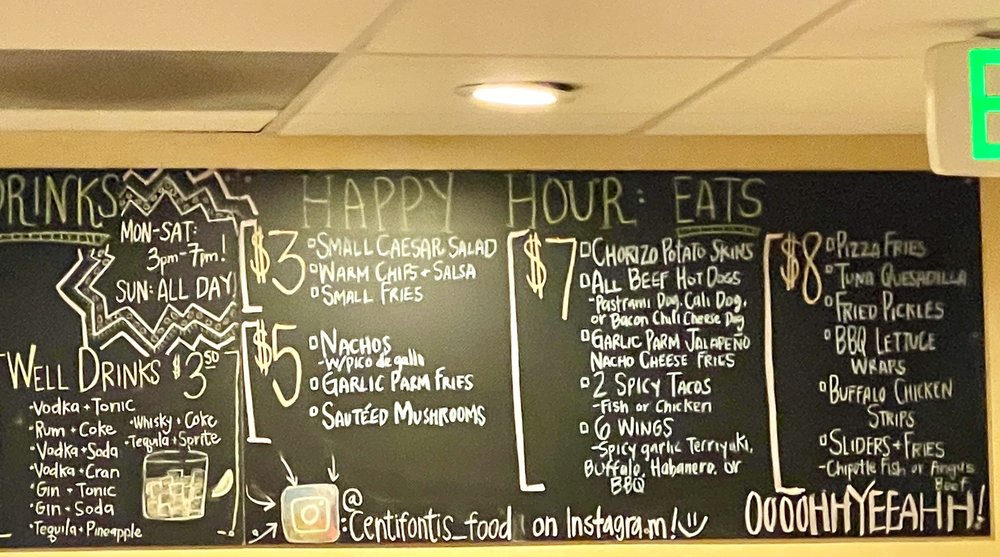 DRINKS
MON-SAT:
3pm-7pm!
SUN: ALL DAY
WELL DRINKS $3.50
Vodka + Tonic
Rum + Coke
Vodka + Soda
Vodka + Cran
Gin + Tonic
Gin + Soda
Tequila + Pineapple
Whisky + Coke
Tequila + Sprite
HAPPY HOUR: EATS
$3
SMALL CAESAR SALAD
WARM CHIPS + SALSA
SMALL FRIES
$5
NACHOS
-w/pico de gallo
GARLIC PARM FRIES
SAUTÉED MUSHROOMS
$7
CHORIZO POTATO SKINS
ALL BEEF HOT DOGS
-Pastrami Dog, Cali Dog,
or Bacon Chili Cheese Dog
GARLIC PARM JALAPEÑO
NACHO CHEESE FRIES
2 SPICY TACOS
-Fish or Chicken
6 WINGS
-Spicy garlic Terriyaki,
Buffalo, Habanero, or
BBQ
$8
PIZZA FRIES
TUNA QUESADILLA
FRIED PICKLES
BBQ LETTUCE
WRAPS
BUFFALO CHICKEN
STRIPS
SLIDERS + FRIES
-Chipotle Fish or Angus
Beef
OOOOHHYEEAHH!
@
:Centifontis_food on Instagram!
E